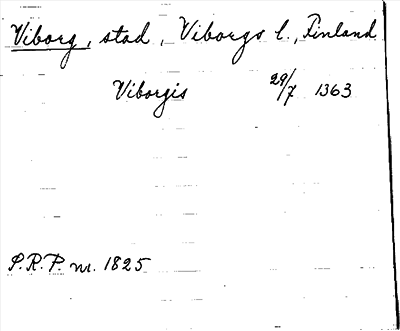 Viborg, stad, Viborgs l., Finland
Viborgis 29/7 1363
P.R.P. nr. 1825